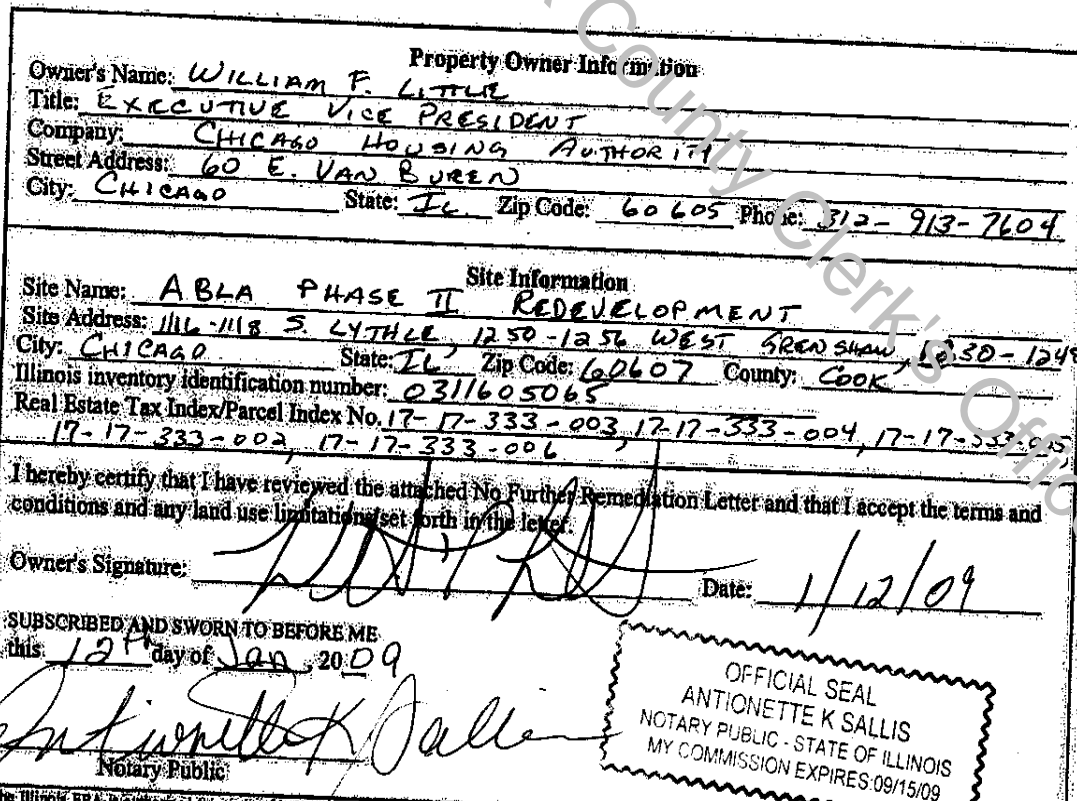 County Clerk's Office
Property Owner Information
Owner's Name: WILLIAM F. LITTLE
Title: EXECUTIVE VICE PRESIDENT
Company: CHICAGO HOUSING AUTHORITY
Street Address: 60 E. VAN BUREN
City: CHICAGO State: IL. Zip Code: 60605 Phone: 312-913-7604
Site Information
Site Name: ABLA PHASE II REDEVELOPMENT
Site Address: 1116-1118 S. LYTHLE, 1250-1256 WEST GRENSHAW, 1230-1248
City: CHICAGO State: IL Zip Code: 60607 County: COOK
Illinois inventory identification number: 0311605065
Real Estate Tax Index/Parcel Index No. 17-17-333-003, 17-17-333-004, 17-17-333-005
17-17-333-002, 17-17-333-006
I hereby certify that I have reviewed the attached No Further Remediation Letter and that I accept the terms and
conditions and any land use limitations set forth in the letter.
Owner's Signature: Date: 1/12/09
SUBSCRIBED AND SWORN TO BEFORE ME
this 12th day of Jan, 2009
Antionette K Sallis
Notary Public
OFFICIAL SEAL
ANTIONETTE K SALLIS
NOTARY PUBLIC - STATE OF ILLINOIS
MY COMMISSION EXPIRES:09/15/09